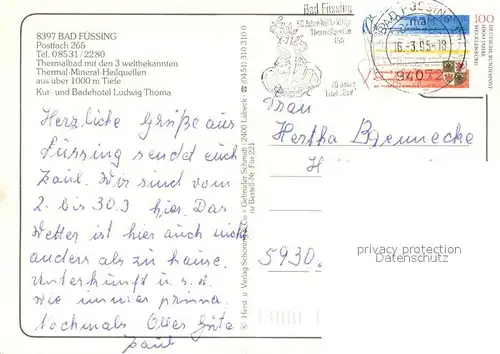 8397 BAD FÜSSING
Postfach 265
Tel. 08531/2280
Thermalbad mit den 3 weltbekannten
Thermal-Mineral-Heilquellen
aus über 1000 m Tiefe
Kur- und Badehotel Ludwig Thoma
Herzliche Grüße aus
Füssing sendet euch
Paul. Wir sind vom
2. bis 30.3 hier. Das
Wetter ist hier auch nicht
anders als zu hause.
Unterkunft u.s.w.
wie immer prima.
Nochmals Alles Gute
Paul
Herst. u. Verlag Schöning & Co + Gebrüder Schmidt · 2400 Lübeck · ☎ (0451) 3 20 31 00
zu Bestell-Nr. Füs 221
Bad Füssing
50 Jahre
Thermalquellen
BAD FÜSSING
16.-3.95-18
94072
100
DEUTSCHE BUNDESPOST
1000 JAHRE
MECKLENBURG
Frau
Hertha
5930.
privacy protection
VDM